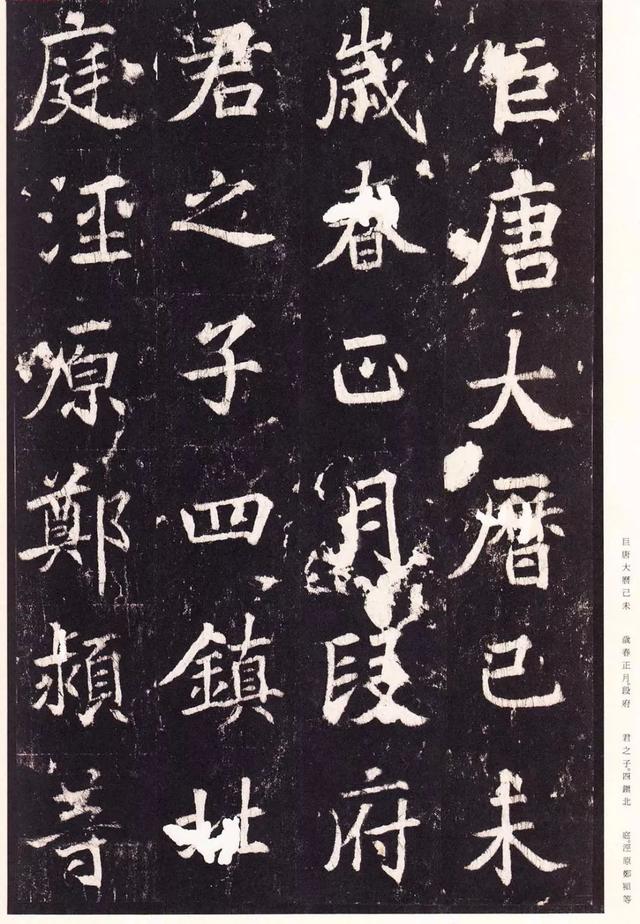 巨唐大曆己未
歲春正月段府
君之子四鎮北
庭涇原鄭潁等
巨唐大曆己未　歲春正月。段府　君之子。四鎮北　庭。涇原鄭潁等